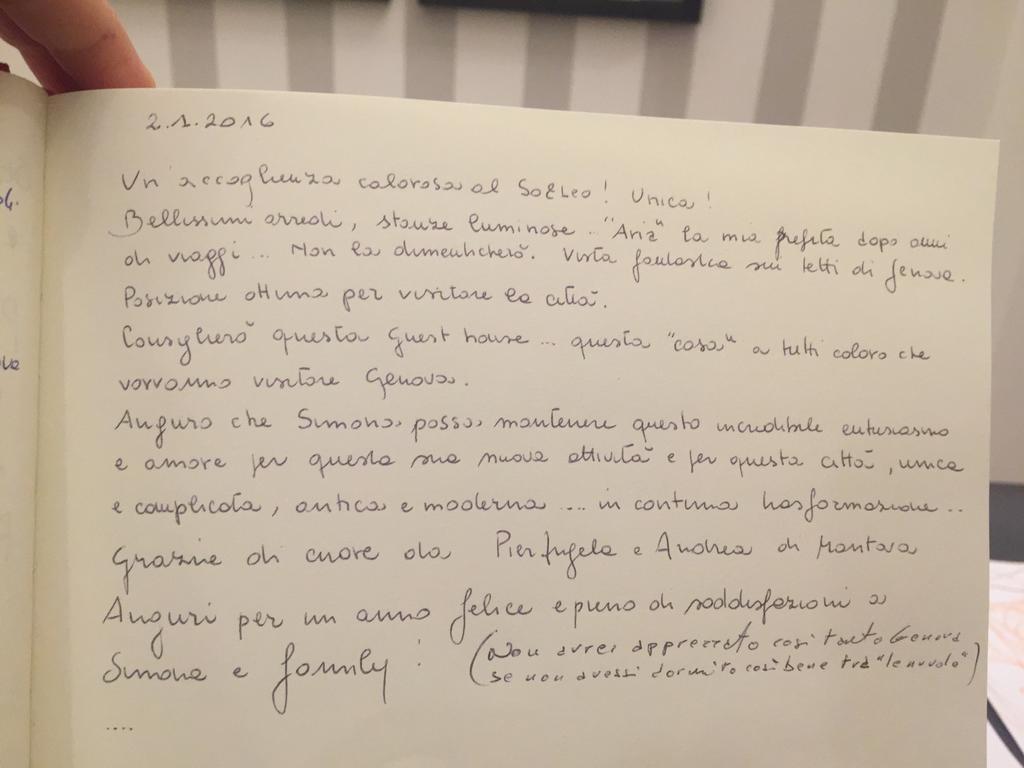 2.1.2016
Un'accoglienza calorosa al So&Leo! Unica!
Bellissimi arredi, stanze luminose... "Aria" la mia preferita dopo anni
di viaggi... Non la dimenticherò. Vista fantastica sui tetti di Genova.
Posizione ottima per visitare la città.
Consiglierò questa Guest house... questa "casa" a tutti coloro che
vorranno visitare Genova.
Auguro che Simona possa mantenere questo incredibile entusiasmo
e amore per questa sua nuova attività e per questa città, unica
e complicata, antica e moderna .... in continua trasformazione..
Grazie di cuore da e Andrea di Mantova
Auguri per un anno felice e pieno di soddisfazioni a
Simona e family!
(Non avrei apprezzato così tanto Genova
se non avessi dormito così bene tra "le nuvole")
....